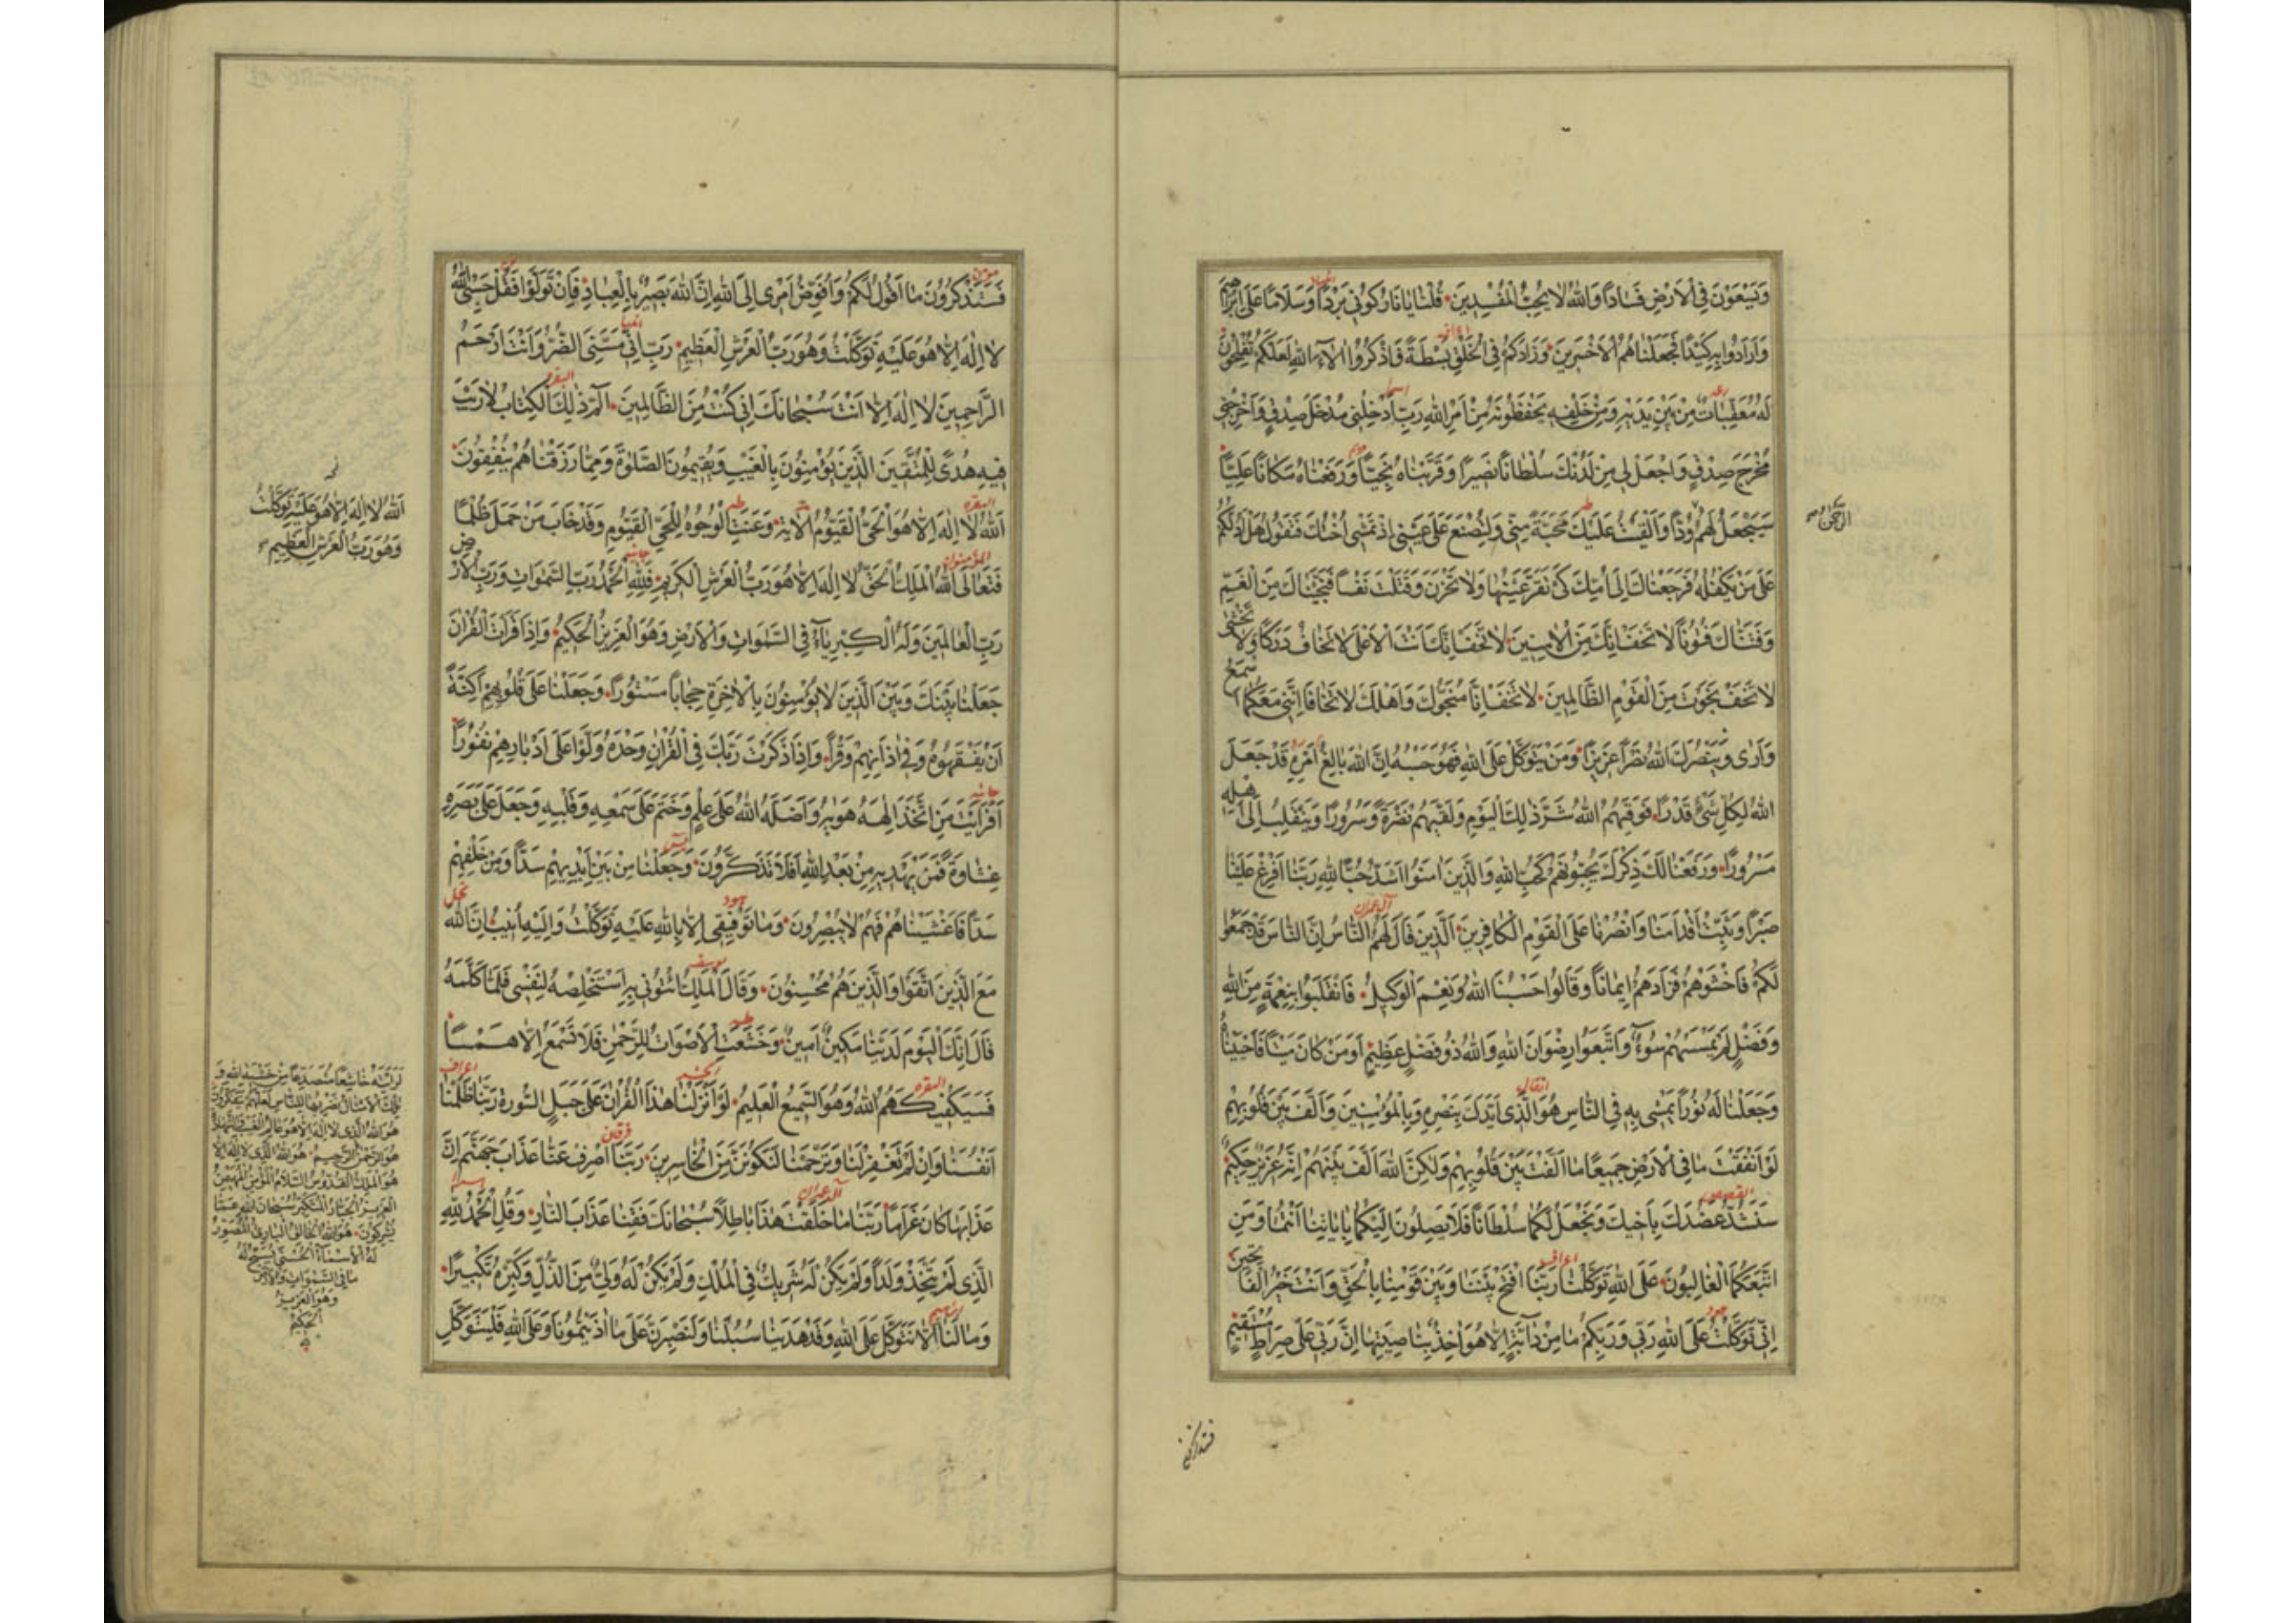 وَيَسْعَوْنَ فِي الْاَرْضِ فَسَادًا وَاللّٰهُ لَا يُحِبُّ الْمُفْسِدِينَ قُلْنَا يَا نَارُ كُونِي بَرْدًا وَسَلَامًا عَلٰى اِبْرَاهِيمَ
وَاَرَادُوا بِهِ كَيْدًا فَجَعَلْنَاهُمُ الْاَخْسَرِينَ وَزَادَكُمْ فِي الْخَلْقِ بَسْطَةً فَاذْكُرُوا اٰلَاءَ اللّٰهِ لَعَلَّكُمْ تُفْلِحُونَ
لَهُ مُعَقِّبَاتٌ مِنْ بَيْنِ يَدَيْهِ وَمِنْ خَلْفِهِ يَحْفَظُونَهُ مِنْ اَمْرِ اللّٰهِ رَبِّ اَدْخِلْنِي مُدْخَلَ صِدْقٍ وَاَخْرِجْنِي
مُخْرَجَ صِدْقٍ وَاجْعَلْ لِي مِنْ لَدُنْكَ سُلْطَانًا نَصِيرًا وَقَرَّبْنَاهُ نَجِيًّا وَرَفَعْنَاهُ مَكَانًا عَلِيًّا
سَيَجْعَلُ لَهُمُ الرَّحْمٰنُ وُدًّا وَاَلْقَيْتُ عَلَيْكَ مَحَبَّةً مِنِّي وَلِتُصْنَعَ عَلٰى عَيْنِي اِذْ تَمْشِي اُخْتُكَ فَتَقُولُ هَلْ اَدُلُّكُمْ
عَلٰى مَنْ يَكْفُلُهُ فَرَجَعْنَاكَ اِلٰى اُمِّكَ كَيْ تَقَرَّ عَيْنُهَا وَلَا تَحْزَنَ وَقَتَلْتَ نَفْسًا فَنَجَّيْنَاكَ مِنَ الْغَمِّ
وَفَتَنَّاكَ فُتُونًا لَا تَخَفْ اِنَّكَ مِنَ الْاٰمِنِينَ لَا تَخَفْ اِنَّكَ اَنْتَ الْاَعْلٰى لَا تَخَافُ دَرَكًا وَلَا تَخْشٰى
لَا تَخَفْ نَجَوْتَ مِنَ الْقَوْمِ الظَّالِمِينَ لَا تَخَفْ اِنَّا مُنَجُّوكَ وَاَهْلَكَ لَا تَخَافَا اِنَّنِي مَعَكُمَا اَسْمَعُ
وَاَرٰى وَيَنْصُرَكَ اللّٰهُ نَصْرًا عَزِيزًا وَمَنْ يَتَوَكَّلْ عَلَى اللّٰهِ فَهُوَ حَسْبُهُ اِنَّ اللّٰهَ بَالِغُ اَمْرِهِ قَدْ جَعَلَ
اللّٰهُ لِكُلِّ شَيْءٍ قَدْرًا فَوَقٰيهُمُ اللّٰهُ شَرَّ ذٰلِكَ الْيَوْمِ وَلَقّٰيهُمْ نَضْرَةً وَسُرُورًا وَيَنْقَلِبُ اِلٰى اَهْلِهِ
مَسْرُورًا وَرَفَعْنَا لَكَ ذِكْرَكَ يُحِبُّونَهُمْ كَحُبِّ اللّٰهِ وَالَّذِينَ اٰمَنُوا اَشَدُّ حُبًّا لِلّٰهِ رَبَّنَا اَفْرِغْ عَلَيْنَا
صَبْرًا وَثَبِّتْ اَقْدَامَنَا وَانْصُرْنَا عَلَى الْقَوْمِ الْكَافِرِينَ الَّذِينَ قَالَ لَهُمُ النَّاسُ اِنَّ النَّاسَ قَدْ جَمَعُوا
لَكُمْ فَاخْشَوْهُمْ فَزَادَهُمْ اِيمَانًا وَقَالُوا حَسْبُنَا اللّٰهُ وَنِعْمَ الْوَكِيلُ فَانْقَلَبُوا بِنِعْمَةٍ مِنَ اللّٰهِ
وَفَضْلٍ لَمْ يَمْسَسْهُمْ سُوءٌ وَاتَّبَعُوا رِضْوَانَ اللّٰهِ وَاللّٰهُ ذُو فَضْلٍ عَظِيمٍ اَوَمَنْ كَانَ مَيْتًا فَاَحْيَيْنَاهُ
وَجَعَلْنَا لَهُ نُورًا يَمْشِي بِهِ فِي النَّاسِ هُوَ الَّذِي اَيَّدَكَ بِنَصْرِهِ وَبِالْمُؤْمِنِينَ وَاَلَّفَ بَيْنَ قُلُوبِهِمْ
لَوْ اَنْفَقْتَ مَا فِي الْاَرْضِ جَمِيعًا مَا اَلَّفْتَ بَيْنَ قُلُوبِهِمْ وَلٰكِنَّ اللّٰهَ اَلَّفَ بَيْنَهُمْ اِنَّهُ عَزِيزٌ حَكِيمٌ
سَنَشُدُّ عَضُدَكَ بِاَخِيكَ وَنَجْعَلُ لَكُمَا سُلْطَانًا فَلَا يَصِلُونَ اِلَيْكُمَا بِاٰيَاتِنَا اَنْتُمَا وَمَنِ
اتَّبَعَكُمَا الْغَالِبُونَ عَلَى اللّٰهِ تَوَكَّلْنَا رَبَّنَا افْتَحْ بَيْنَنَا وَبَيْنَ قَوْمِنَا بِالْحَقِّ وَاَنْتَ خَيْرُ الْفَاتِحِينَ
اِنِّي تَوَكَّلْتُ عَلَى اللّٰهِ رَبِّي وَرَبِّكُمْ مَا مِنْ دَابَّةٍ اِلَّا هُوَ اٰخِذٌ بِنَاصِيَتِهَا اِنَّ رَبِّي عَلٰى صِرَاطٍ مُسْتَقِيمٍ
فستذكرون
فَسَتَذْكُرُونَ مَا اَقُولُ لَكُمْ وَاُفَوِّضُ اَمْرِي اِلَى اللّٰهِ اِنَّ اللّٰهَ بَصِيرٌ بِالْعِبَادِ فَاِنْ تَوَلَّوْا فَقُلْ حَسْبِيَ اللّٰهُ
لَا اِلٰهَ اِلَّا هُوَ عَلَيْهِ تَوَكَّلْتُ وَهُوَ رَبُّ الْعَرْشِ الْعَظِيمِ رَبِّ اِنِّي مَسَّنِيَ الضُّرُّ وَاَنْتَ اَرْحَمُ
الرَّاحِمِينَ لَا اِلٰهَ اِلَّا اَنْتَ سُبْحَانَكَ اِنِّي كُنْتُ مِنَ الظَّالِمِينَ الٓمٓ ذٰلِكَ الْكِتَابُ لَا رَيْبَ
فِيهِ هُدًى لِلْمُتَّقِينَ الَّذِينَ يُؤْمِنُونَ بِالْغَيْبِ وَيُقِيمُونَ الصَّلٰوةَ وَمِمَّا رَزَقْنَاهُمْ يُنْفِقُونَ
اَللّٰهُ لَا اِلٰهَ اِلَّا هُوَ الْحَيُّ الْقَيُّومُ الْاٰيَة وَعَنَتِ الْوُجُوهُ لِلْحَيِّ الْقَيُّومِ وَقَدْ خَابَ مَنْ حَمَلَ ظُلْمًا
فَتَعَالَى اللّٰهُ الْمَلِكُ الْحَقُّ لَا اِلٰهَ اِلَّا هُوَ رَبُّ الْعَرْشِ الْكَرِيمِ فَلِلّٰهِ الْحَمْدُ رَبِّ السَّمٰوَاتِ وَرَبِّ الْاَرْضِ
رَبِّ الْعَالَمِينَ وَلَهُ الْكِبْرِيَاءُ فِي السَّمٰوَاتِ وَالْاَرْضِ وَهُوَ الْعَزِيزُ الْحَكِيمُ وَاِذَا قَرَأْتَ الْقُرْاٰنَ
جَعَلْنَا بَيْنَكَ وَبَيْنَ الَّذِينَ لَا يُؤْمِنُونَ بِالْاٰخِرَةِ حِجَابًا مَسْتُورًا وَجَعَلْنَا عَلٰى قُلُوبِهِمْ اَكِنَّةً
اَنْ يَفْقَهُوهُ وَفِي اٰذَانِهِمْ وَقْرًا وَاِذَا ذَكَرْتَ رَبَّكَ فِي الْقُرْاٰنِ وَحْدَهُ وَلَّوْا عَلٰى اَدْبَارِهِمْ نُفُورًا
اَفَرَاَيْتَ مَنِ اتَّخَذَ اِلٰهَهُ هَوٰيهُ وَاَضَلَّهُ اللّٰهُ عَلٰى عِلْمٍ وَخَتَمَ عَلٰى سَمْعِهِ وَقَلْبِهِ وَجَعَلَ عَلٰى بَصَرِهِ
غِشَاوَةً فَمَنْ يَهْدِيهِ مِنْ بَعْدِ اللّٰهِ اَفَلَا تَذَكَّرُونَ وَجَعَلْنَا مِنْ بَيْنِ اَيْدِيهِمْ سَدًّا وَمِنْ خَلْفِهِمْ
سَدًّا فَاَغْشَيْنَاهُمْ فَهُمْ لَا يُبْصِرُونَ وَمَا تَوْفِيقِي اِلَّا بِاللّٰهِ عَلَيْهِ تَوَكَّلْتُ وَاِلَيْهِ اُنِيبُ اِنَّ اللّٰهَ
مَعَ الَّذِينَ اتَّقَوْا وَالَّذِينَ هُمْ مُحْسِنُونَ وَقَالَ الْمَلِكُ ائْتُونِي بِهِ اَسْتَخْلِصْهُ لِنَفْسِي فَلَمَّا كَلَّمَهُ
قَالَ اِنَّكَ الْيَوْمَ لَدَيْنَا مَكِينٌ اَمِينٌ وَخَشَعَتِ الْاَصْوَاتُ لِلرَّحْمٰنِ فَلَا تَسْمَعُ اِلَّا هَمْسًا
فَسَيَكْفِيكَهُمُ اللّٰهُ وَهُوَ السَّمِيعُ الْعَلِيمُ لَوْ اَنْزَلْنَا هٰذَا الْقُرْاٰنَ عَلٰى جَبَلٍ السُّورة رَبَّنَا ظَلَمْنَا
اَنْفُسَنَا وَاِنْ لَمْ تَغْفِرْ لَنَا وَتَرْحَمْنَا لَنَكُونَنَّ مِنَ الْخَاسِرِينَ رَبَّنَا اصْرِفْ عَنَّا عَذَابَ جَهَنَّمَ اِنَّ
عَذَابَهَا كَانَ غَرَامًا رَبَّنَا مَا خَلَقْتَ هٰذَا بَاطِلًا سُبْحَانَكَ فَقِنَا عَذَابَ النَّارِ وَقُلِ الْحَمْدُ لِلّٰهِ
الَّذِي لَمْ يَتَّخِذْ وَلَدًا وَلَمْ يَكُنْ لَهُ شَرِيكٌ فِي الْمُلْكِ وَلَمْ يَكُنْ لَهُ وَلِيٌّ مِنَ الذُّلِّ وَكَبِّرْهُ تَكْبِيرًا
وَمَا لَنَا اَلَّا نَتَوَكَّلَ عَلَى اللّٰهِ وَقَدْ هَدٰينَا سُبُلَنَا وَلَنَصْبِرَنَّ عَلٰى مَا اٰذَيْتُمُونَا وَعَلَى اللّٰهِ فَلْيَتَوَكَّلِ
اَللّٰهُ لَا اِلٰهَ اِلَّا هُوَ عَلَيْهِ تَوَكَّلْتُ
وَهُوَ رَبُّ الْعَرْشِ الْعَظِيمِ
لَرَاَيْتَهُ خَاشِعًا مُتَصَدِّعًا مِنْ خَشْيَةِ اللّٰهِ وَ
تِلْكَ الْاَمْثَالُ نَضْرِبُهَا لِلنَّاسِ لَعَلَّهُمْ يَتَفَكَّرُونَ
هُوَ اللّٰهُ الَّذِي لَا اِلٰهَ اِلَّا هُوَ عَالِمُ الْغَيْبِ وَالشَّهَادَةِ
هُوَ الرَّحْمٰنُ الرَّحِيمُ هُوَ اللّٰهُ الَّذِي لَا اِلٰهَ اِلَّا
هُوَ الْمَلِكُ الْقُدُّوسُ السَّلَامُ الْمُؤْمِنُ الْمُهَيْمِنُ
الْعَزِيزُ الْجَبَّارُ الْمُتَكَبِّرُ سُبْحَانَ اللّٰهِ عَمَّا
يُشْرِكُونَ هُوَ اللّٰهُ الْخَالِقُ الْبَارِئُ الْمُصَوِّرُ
لَهُ الْاَسْمَاءُ الْحُسْنٰى يُسَبِّحُ لَهُ
مَا فِي السَّمٰوَاتِ وَالْاَرْضِ
وَهُوَ الْعَزِيزُ
الْحَكِيمُ